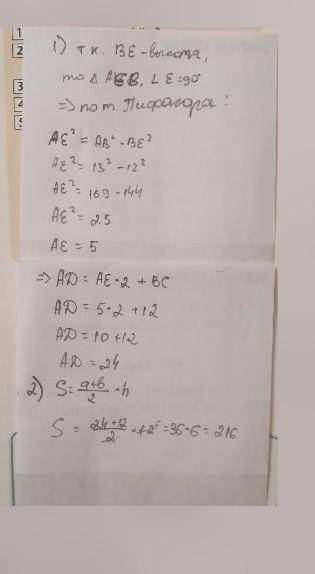 1
2
3
4
1) т.к. BE-высота,
то △ AEB, ∠E=90
=> по т. Пифагора:
AE² = AB² - BE²
AE² = 13² - 12²
AE² = 169 - 144
AE² = 25
AE = 5
=> AD = AE·2 + BC
AD = 5·2 + 12
AD = 10 + 12
AD = 24
2) S = (a+b)/2 · h
S = (24+12)/2 · 12⁶ = 36·6 = 216